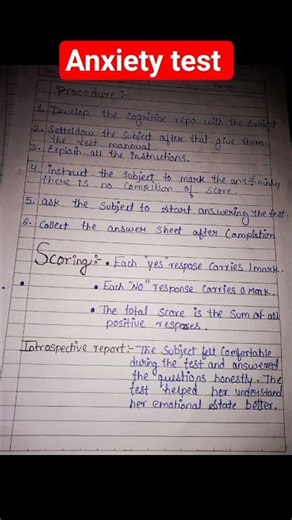 Anxiety test
Procedure :-
1. Develop the Cognitive repo with the Subject
2. Setteldow the Subject after that give them
the test mannual.
3. Explain all the instructions.
4. instruct the Subject to mark the
there is no Compltion of Score.
5. ask the Subject to start answering the test.
6. Collect the answer sheet after Completion
Scoring:- • Each "yes respose Carries 1 mark.
• Each "NO" response Carries 0 Mark.
• The total Score is the Sum of all
positive resposes.
Introspective report:- The Subject felt Comfortable
during the test and answered
the questions honestly. The
test helped her understand
her emotional state better.